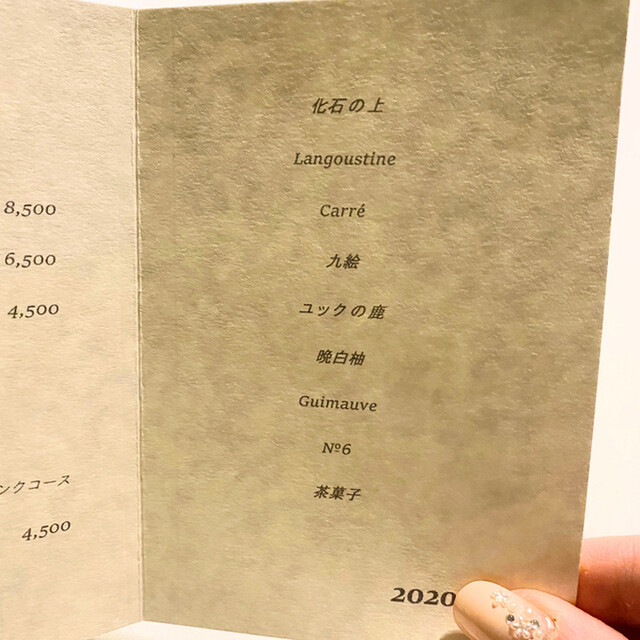 8,500
6,500
4,500
ンクコース
4,500
化石の上
Langoustine
Carré
九絵
ユックの鹿
晩白柚
Guimauve
Nº6
茶菓子
2020